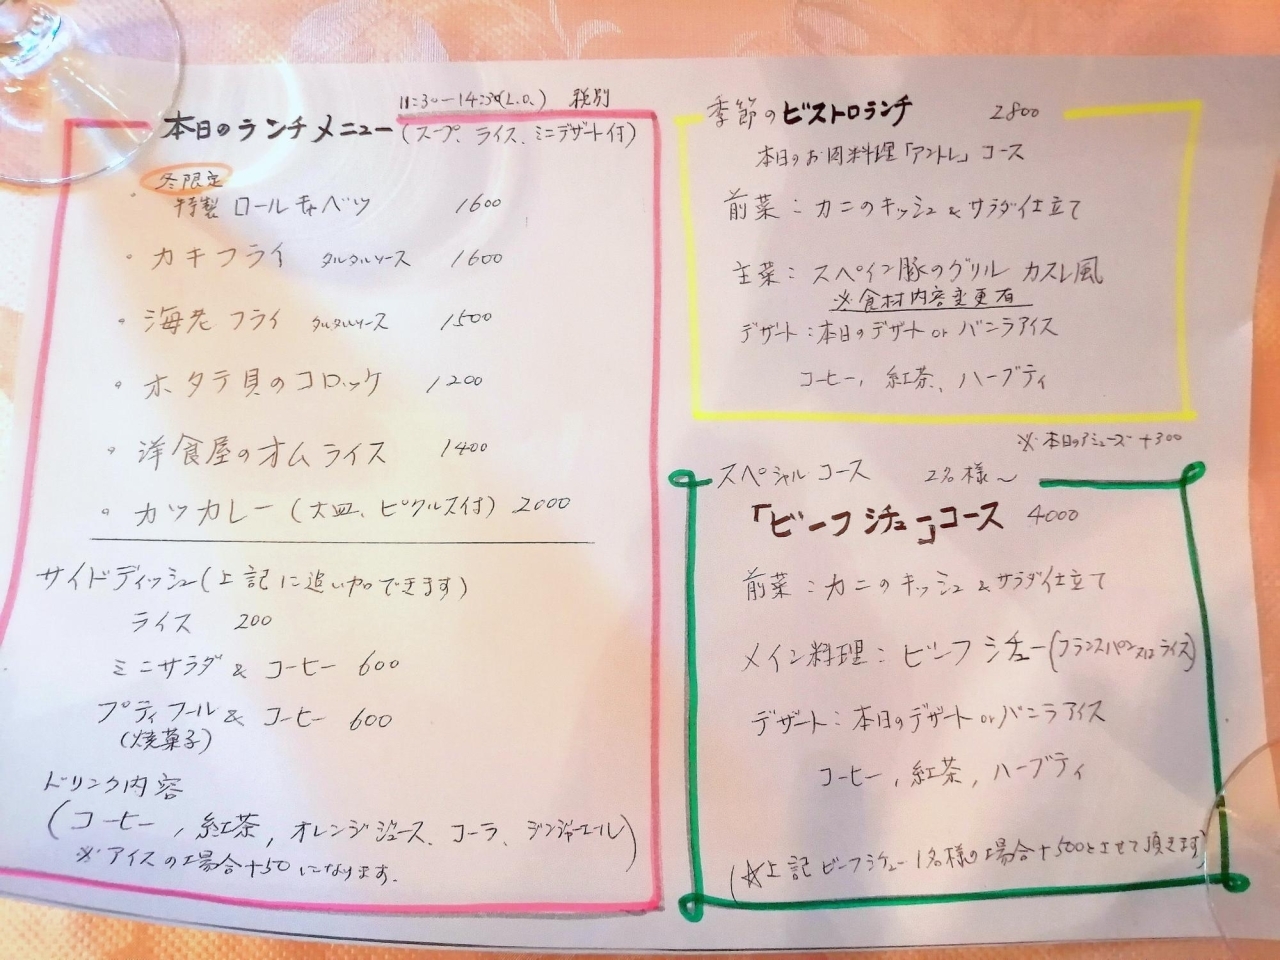 11:30-14:30(L.O.) 税別
本日のランチメニュー(スープ、ライス、ミニデザート付)
冬限定
・特製 ロールキャベツ 1600
・カキフライ タルタルソース 1600
・海老フライ タルタルソース 1500
・ホタテ貝のコロッケ 1200
・洋食屋のオムライス 1400
・カツカレー(大皿、ピクルス付) 2000
サイドディッシュ(上記に追加できます)
ライス 200
ミニサラダ & コーヒー 600
プティフール & コーヒー 600
(焼菓子)
ドリンク内容
(コーヒー, 紅茶, オレンジジュース、コーラ、ジンジャーエール)
※アイスの場合+50になります.
季節のビストロランチ 2800
本日のお肉料理「アントレ」コース
前菜:カニのキッシュ & サラダ仕立て
主菜:スペイン豚のグリル カスレ風
※食材内容変更有
デザート:本日のデザート or バニラアイス
コーヒー, 紅茶、ハーブティ
※本日のアミューズ +300
スペシャルコース 2名様〜
「ビーフシチュー」コース 4000
前菜:カニのキッシュ & サラダ仕立て
メイン料理:ビーフシチュー(フランスパン又はライス)
デザート:本日のデザート or バニラアイス
コーヒー, 紅茶, ハーブティ
(☆上記ビーフシチュー1名様の場合+500とさせて頂きます)